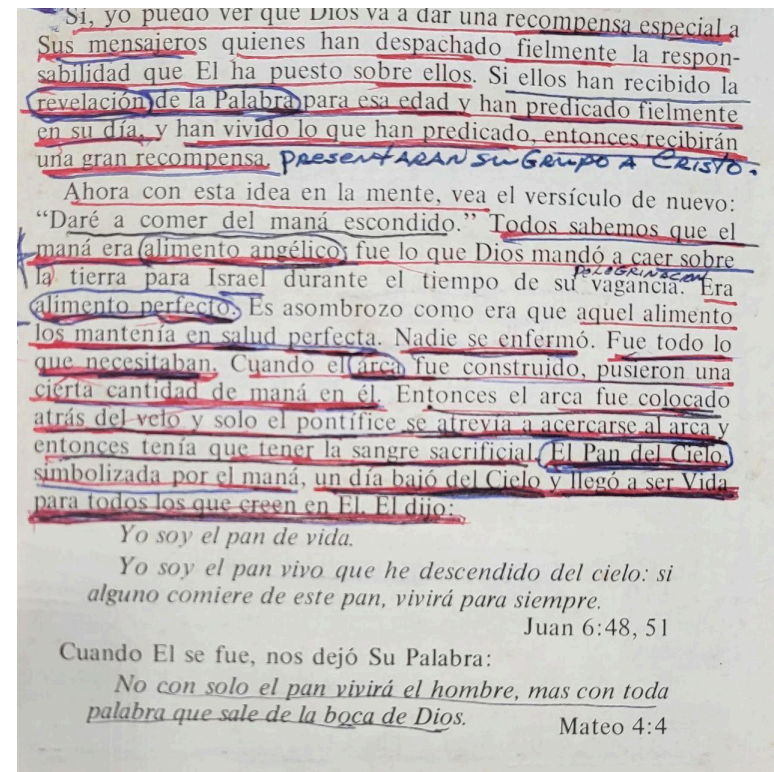 Sí, yo puedo ver que Dios va a dar una recompensa especial a
Sus mensajeros quienes han despachado fielmente la respon-
sabilidad que El ha puesto sobre ellos. Si ellos han recibido la
revelación de la Palabra para esa edad y han predicado fielmente
en su día, y han vivido lo que han predicado, entonces recibirán
una gran recompensa. PRESENTARAN SU GRUPO A CRISTO.
Ahora con esta idea en la mente, vea el versículo de nuevo:
“Daré a comer del maná escondido.” Todos sabemos que el
maná era alimento angélico; fue lo que Dios mandó a caer sobre
POLOGRINACION
la tierra para Israel durante el tiempo de su vagancia. Era
alimento perfecto. Es asombrozo como era que aquel alimento
los mantenía en salud perfecta. Nadie se enfermó. Fue todo lo
que necesitaban. Cuando el arca fue construido, pusieron una
cierta cantidad de maná en él. Entonces el arca fue colocado
atrás del velo y solo el pontífice se atrevía a acercarse al arca y
entonces tenía que tener la sangre sacrificial. El Pan del Cielo,
simbolizada por el maná, un día bajó del Cielo y llegó a ser Vida
para todos los que creen en El. El dijo:
Yo soy el pan de vida.
Yo soy el pan vivo que he descendido del cielo: si
alguno comiere de este pan, vivirá para siempre.
Juan 6:48, 51
Cuando El se fue, nos dejó Su Palabra:
No con solo el pan vivirá el hombre, mas con toda
palabra que sale de la boca de Dios.
Mateo 4:4